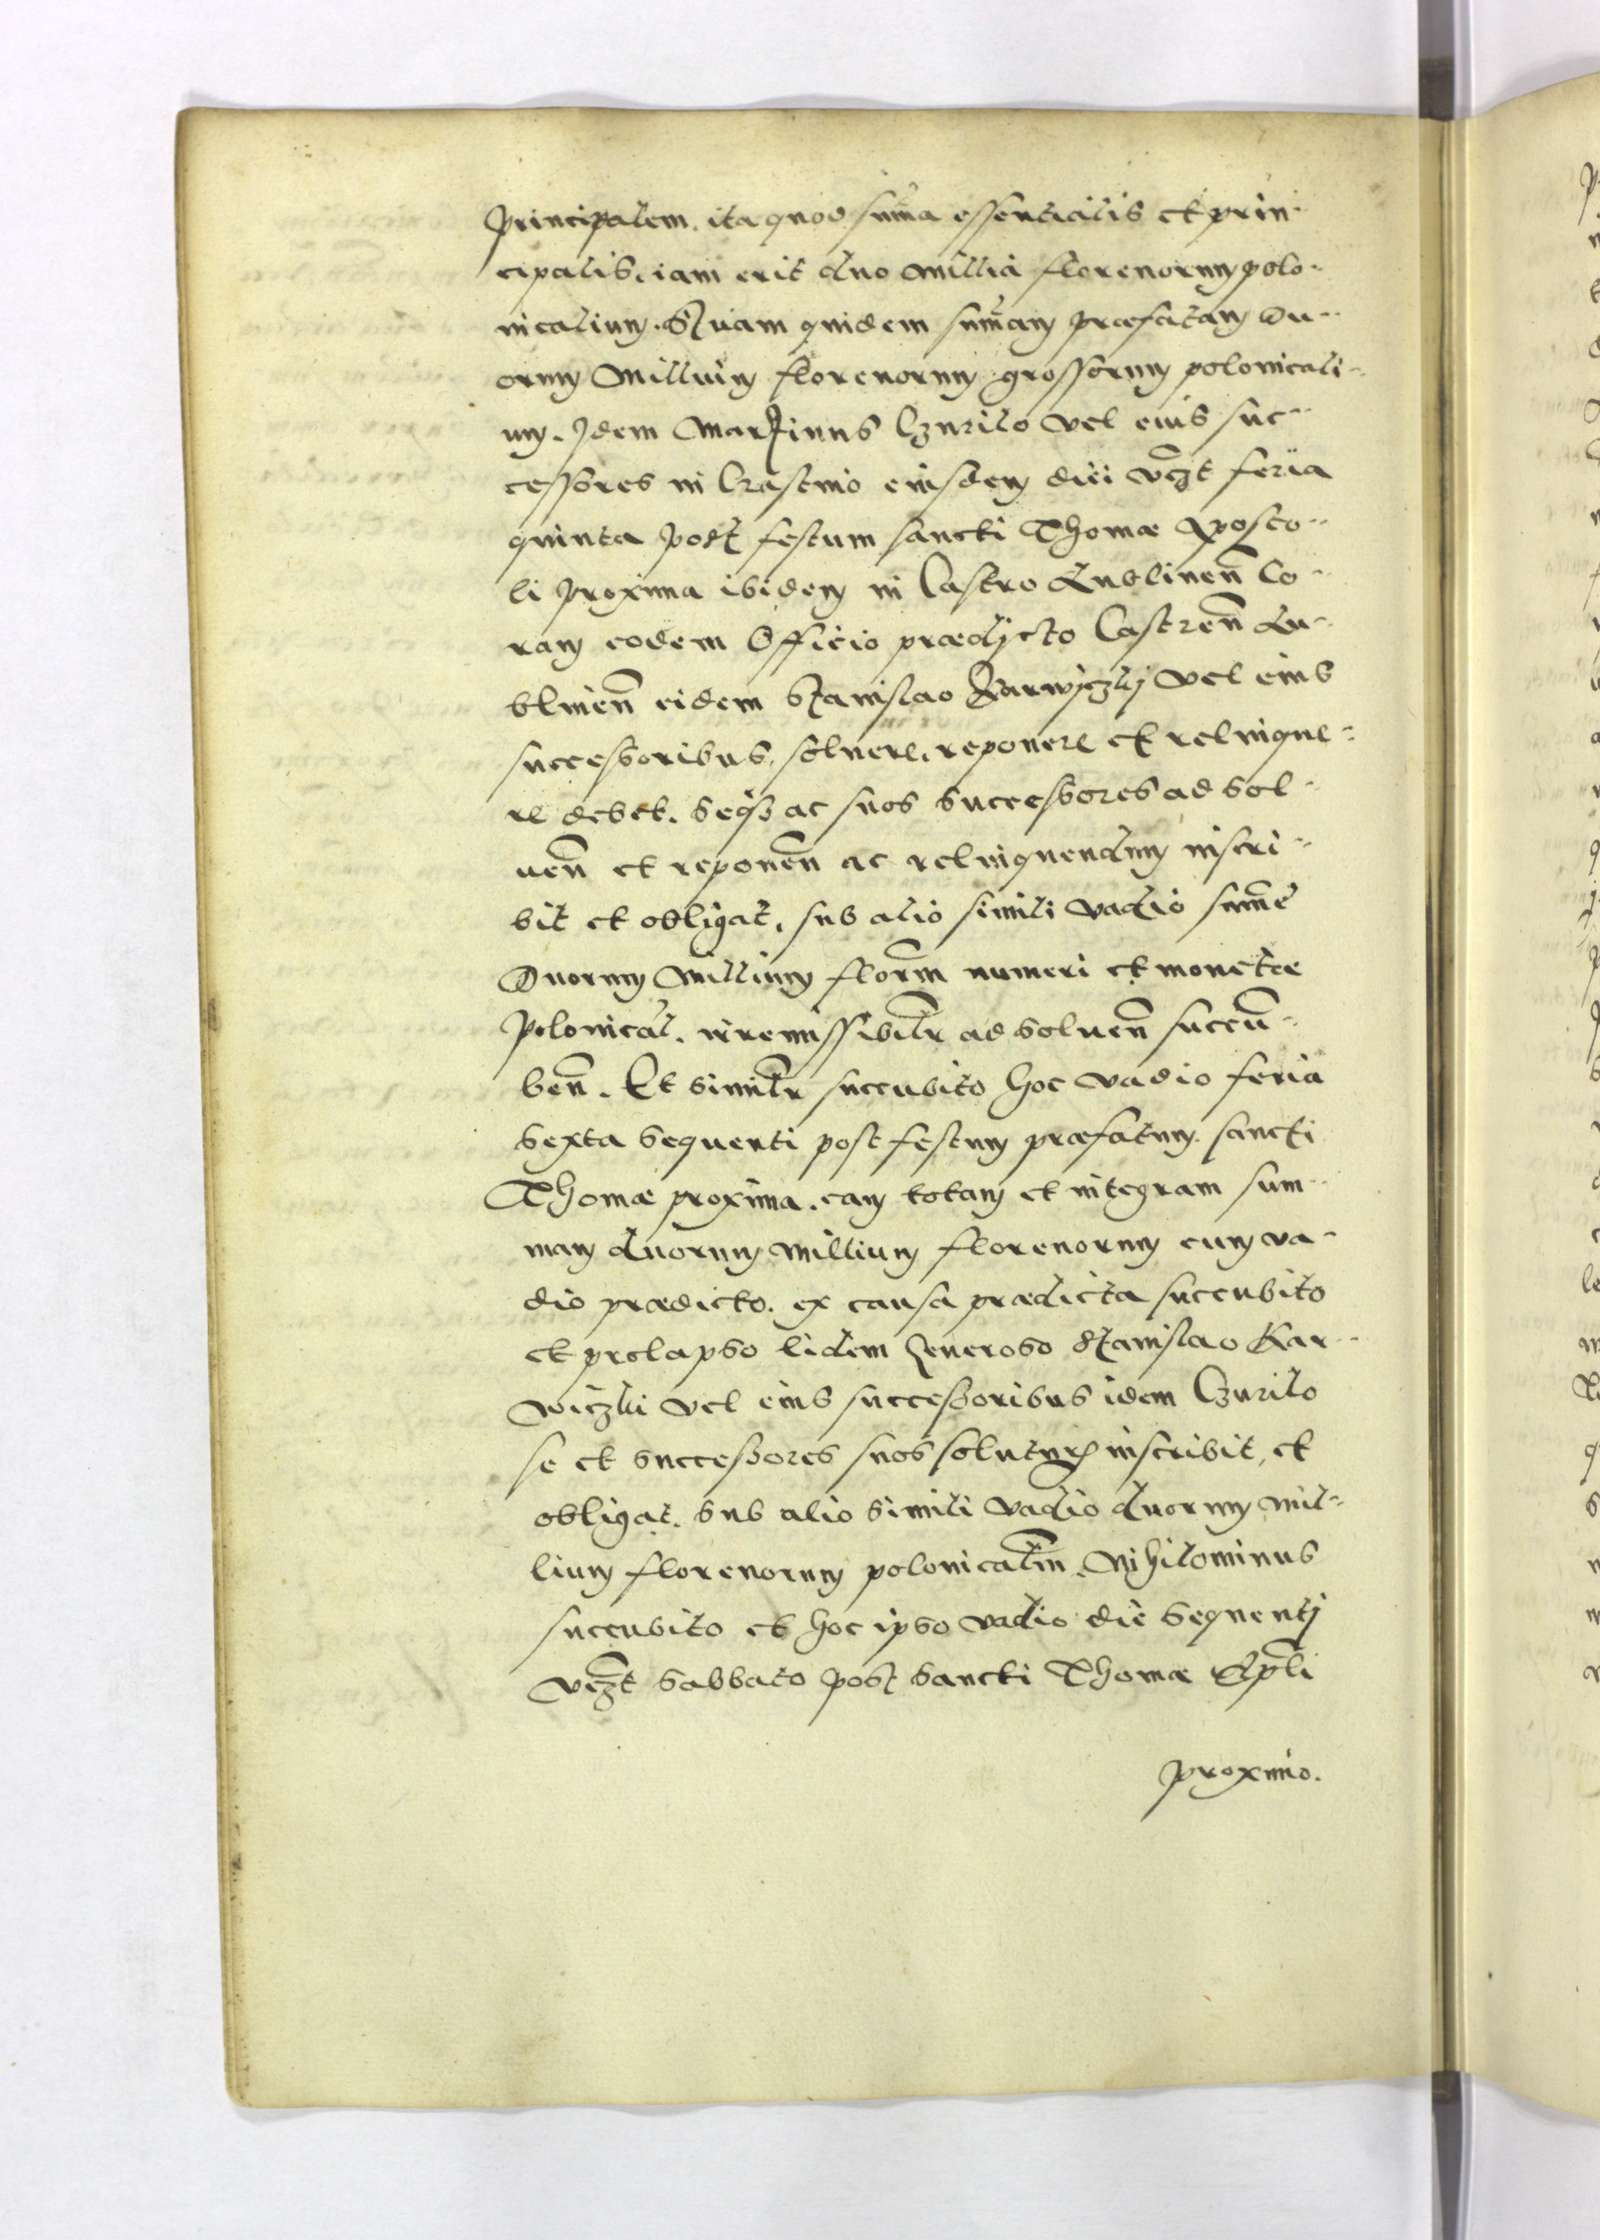 principalem. ita quod sum̃a essentialis et prin-
cipalis. iam erit duo millia florenorum polo-
nicalium. Quam quidem sum̃am præfatam du-
orum Millium florenorum grossorum polonicali-
um. Idem Martinus Czurilo vel eius suc-
cessores in Crastino eiusdem diei vcz̃t feria
quinta post festum sancti Thomæ Aposto-
li proxima ibidem in Castro Lublinen̄ Co-
ram eodem Officio prædicto Castren̄ Lu-
blinen̄ eidem Stanislao Karwiczkij vel eius
successoribus, soluere. reponere et relinque-
re debet. seqз ac suos successores ad sol-
uen̄ et reponen̄ ac relinquendum inscri-
bit et obligat. sub alio simili vadio sum̃e
Duorum Millium floren̄ numeri et monetæ
polonical. irremissibilr̃ ad soluen̄ succu̅-
ben̄. Et similr̃ succubito hoc vadio feria
sexta sequenti post festum præfatum sancti
Thomæ proxima. eam totam et integram sum-
mam duorum millium florenorum cum va-
dio prædicto. ex causa prædicta succubito
et prolapso Eidem Generoso Stanislao Kar-
wiczki vel eius successoribus idem Czurilo
se et successores suos soluturum inscribit, et
obligat. sub alio simili vadio duorum mil-
lium florenorum polonicaliu̅m. Nihilominus
succubito et hoc ipso vadio die sequentj
vcz̃t sabbato post sancti Thomæ Apl̃i
proximo.